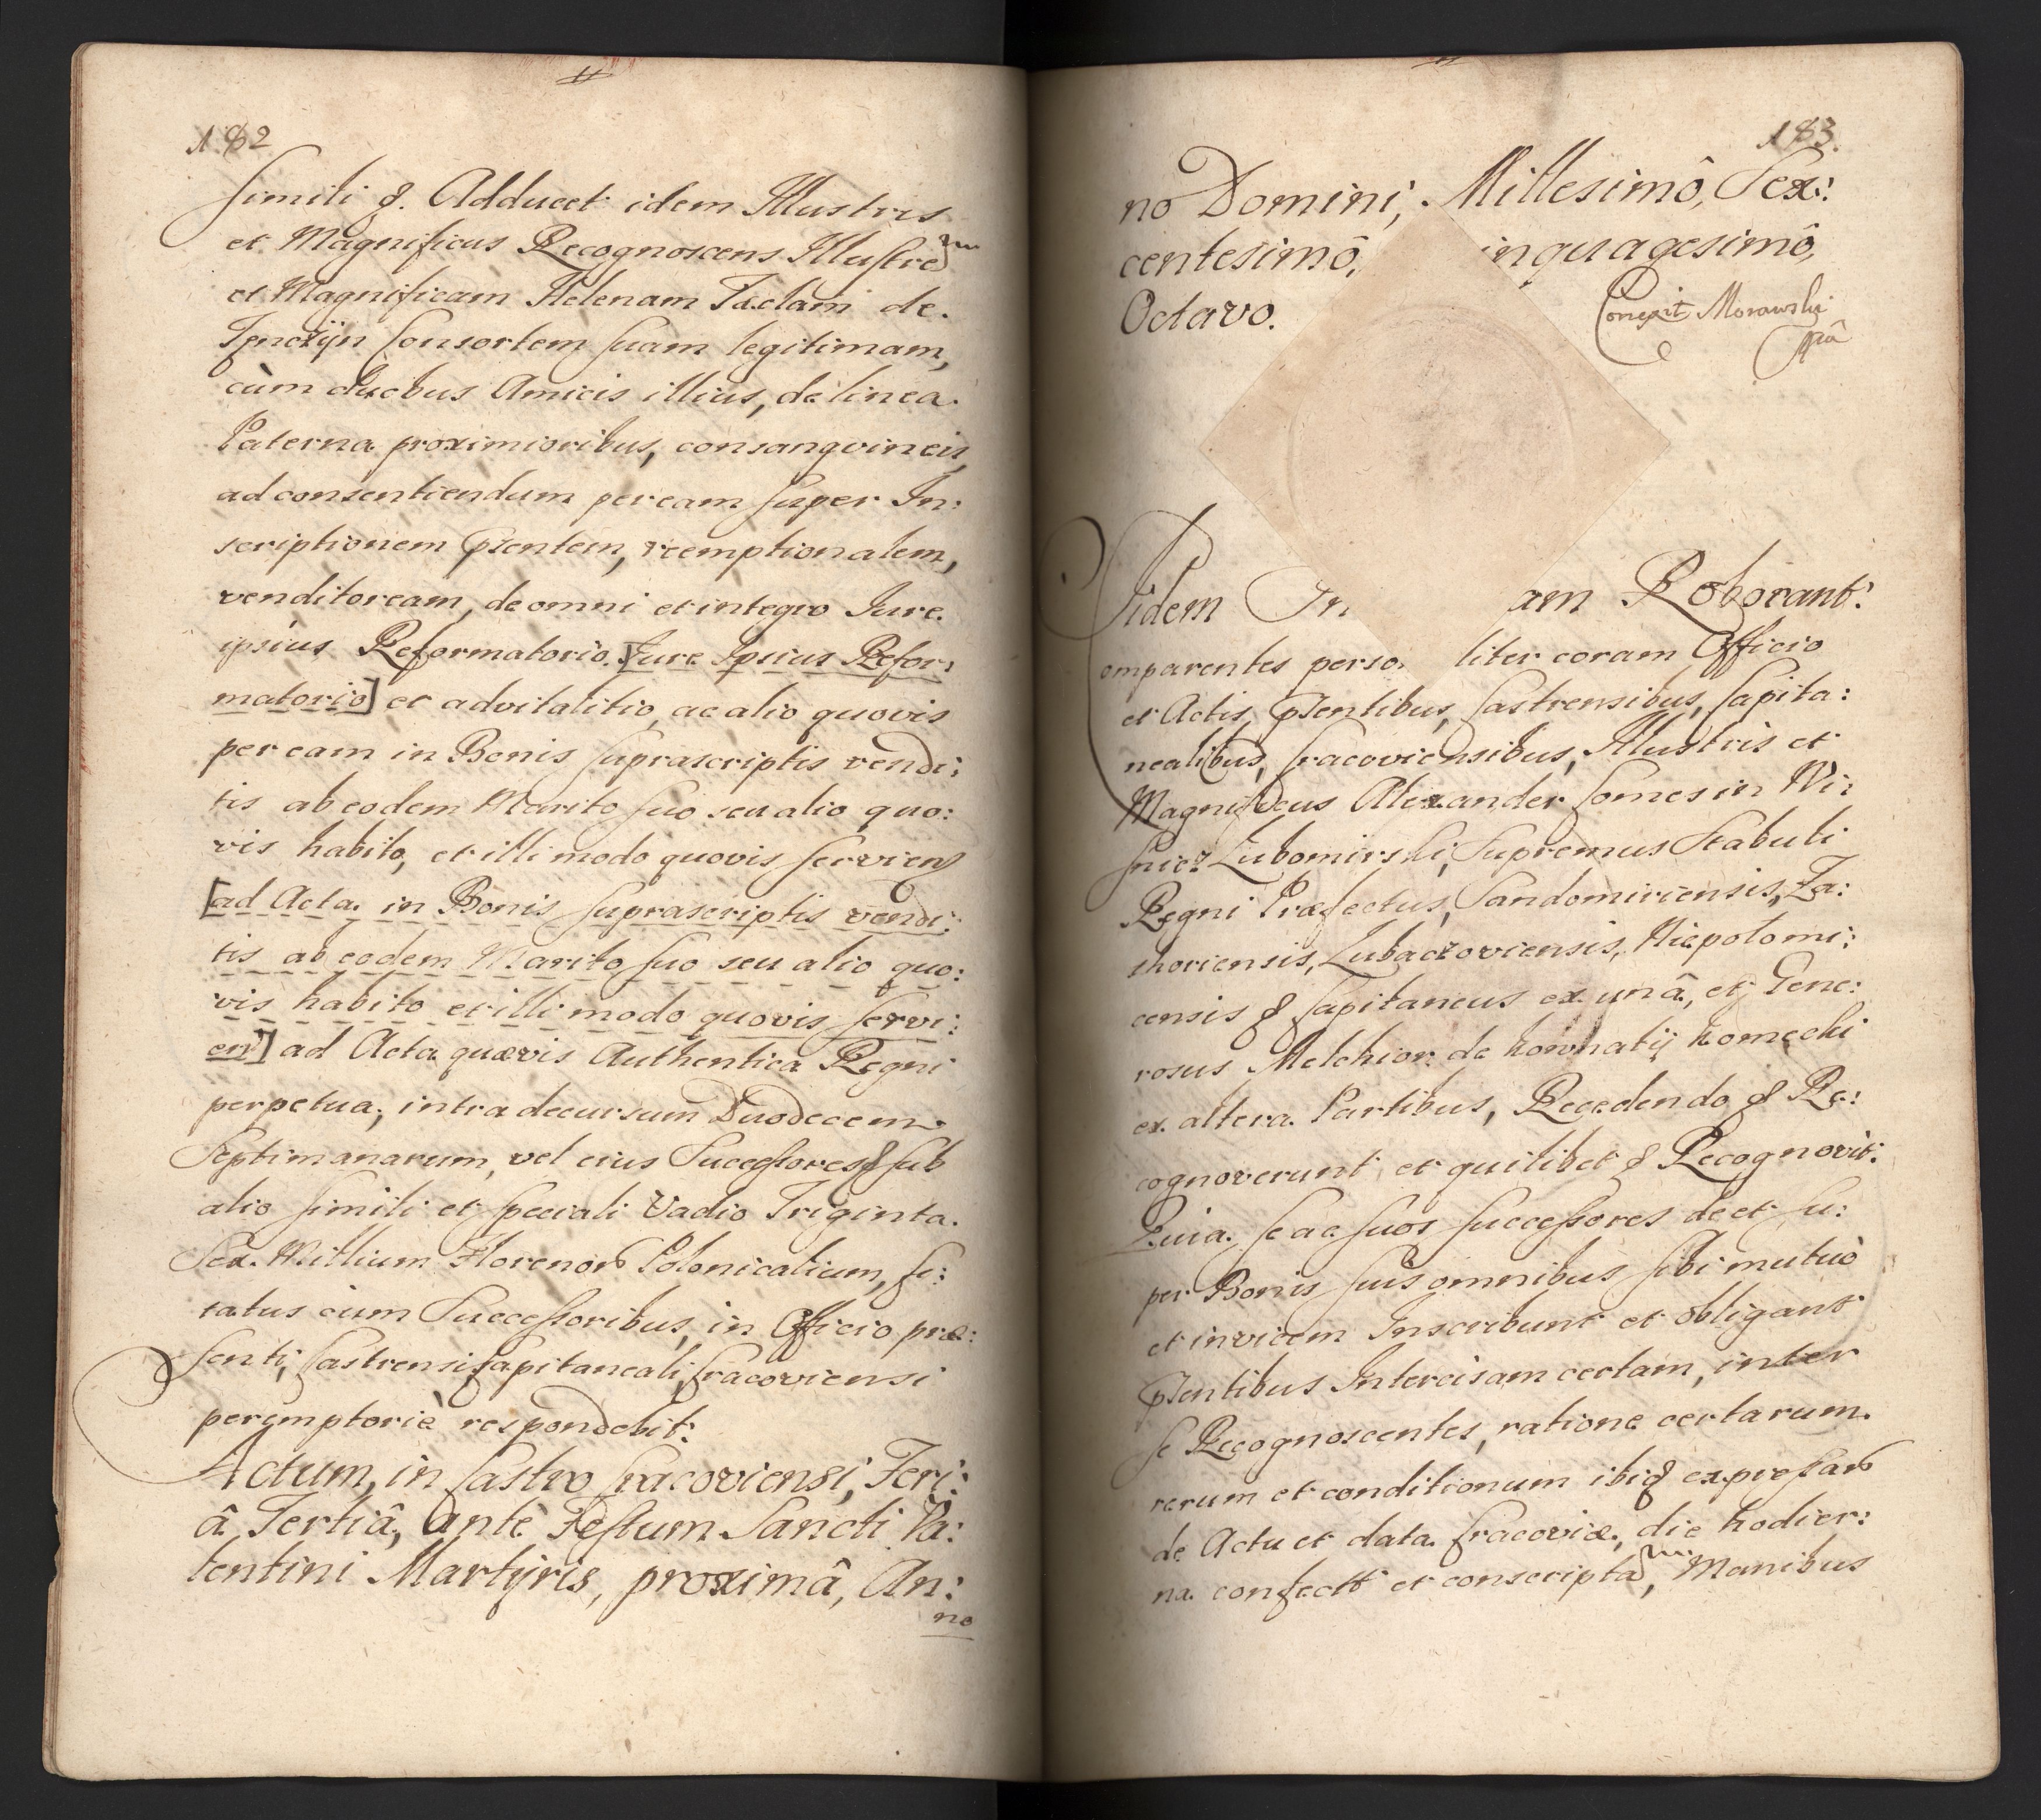 182
simili &. Adducet idem Illustris
et Magnificus Recognoscens Illustrem
et Magnificam Helenam Teclam de
Tęnczÿn Consortem suam legitimam,
cùm duobus Amicis illius, de linea
Paterna proximioribus, consangvineis
ad consentiendum per eam super In:
scriptionem pñtem, reemptionalem,
venditoream, de omni et integro Iure
ipsius Reformatorio. [Iure Ipsius Refor:
matorio] et advitalitio, ac alio quovis
per eam in Bonis suprascriptis vendi:
tis ab eodem Marito suo seu alio quo:
vis habito, et illi modo quovis servien
[ad Acta in Bonis suprascriptis vendi:
tis ab eodem Marito suo seu alio quo:
vis habito et illi modo quovis servi:
en] ad Acta quævis Authentica Regni
perpetua, intra decursum Duodecem
Septimanarum, vel eius Successores & sub
alio simili et speciali Vadio Triginta
Sex Millium Florenor Polonicalium, si:
tatus cum Successoribus, in Officio præ:
senti, Castrensi Capitaneali, Cracoviensi
peremptoriè respondebit:
Actum, in Castro Cracoviensi, Feri:
â Tertiâ, antè Festum Sancti Va:
lentini Martÿris, proximâ, An:
no
183.
no Domini, Millesimô, Sex:
centesimô, inquagesimô,
Octavo.
Correxit Morawski
mpâ
Iidem In am Roborant:
omparentes perso liter coram Officio
et Actis, pñtibus, Castrensibus, Capita:
nealibus, Cracoviensibus, Illustris et
Magnificus Alexander Comes in Wi:
snicz Lubomirski, Supremus Stabuli
Regni Præfectus, Sandomiriensis, Za:
thoriensis, Lubaczoviensis, Niepolomi:
censis & Capitaneus ex unâ, et Gene:
rosus Melchior de Kownatÿ Komecki
ex altera Partibus, Recedendo & Re:
cognoverunt, et quilibet & Recognovit:
Quia se ac suos successores de et su:
per Bonis suis omnibus sibi mutuò
et invicem Inscribunt et obligant
pñtibus Intercisam certam, inter
se Recognoscentes, ratione certarum
rerum et conditionum ibiq expressar
de Actu et data Cracoviæ, die hodier:
na confect et conscriptam, Manibus